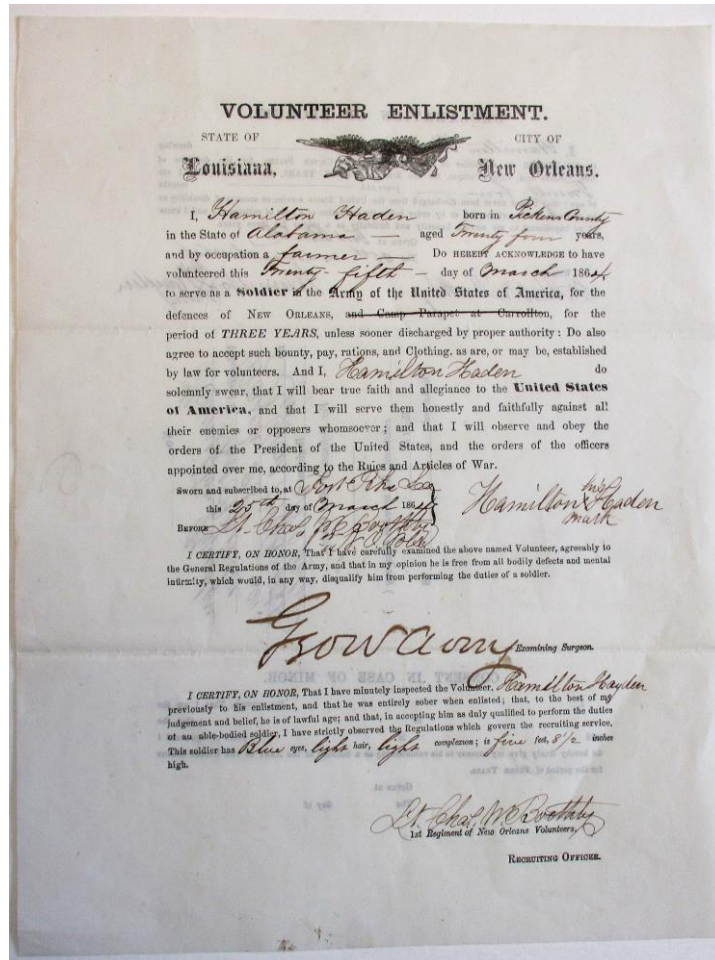 VOLUNTEER ENLISTMENT.
STATE OF CITY OF
Louisiana, New Orleans.
I, Hamilton Haden born in Pickens County
in the State of Alabama — aged Twenty four years,
and by occupation a farmer — Do HEREBY ACKNOWLEDGE to have
volunteered this Twenty fifth — day of March 1864
to serve as a Soldier in the Army of the United States of America, for the
defences of NEW ORLEANS, and Camp Parapet at Carrollton, for the
period of THREE YEARS, unless sooner discharged by proper authority: Do also
agree to accept such bounty, pay, rations, and Clothing, as are, or may be, established
by law for volunteers. And I, Hamilton Haden do
solemnly swear, that I will bear true faith and allegiance to the United States
of America, and that I will serve them honestly and faithfully against all
their enemies or opposers whomsoever; and that I will observe and obey the
orders of the President of the United States, and the orders of the officers
appointed over me, according to the Rules and Articles of War.
Sworn and subscribed to, at Fort Pike La
this 25th day of March 1864
Hamilton his Haden
mark
BEFORE Lt. Chas W Boothby
I CERTIFY, ON HONOR, That I have carefully examined the above named Volunteer, agreeably to
the General Regulations of the Army, and that in my opinion he is free from all bodily defects and mental
infirmity, which would, in any way, disqualify him from performing the duties of a soldier.
Examining Surgeon.
I CERTIFY, ON HONOR, That I have minutely inspected the Volunteer, Hamilton Hayden
previously to his enlistment, and that he was entirely sober when enlisted; that, to the best of my
judgement and belief, he is of lawful age; and that, in accepting him as duly qualified to perform the duties
of an able-bodied soldier, I have strictly observed the Regulations which govern the recruiting service.
This soldier has Blue eyes, light hair, light complexion; is five feet, 8 1/2 inches
high.
Lt. Chas. W. Boothby
1st Regiment of New Orleans Volunteers,
RECRUITING OFFICER.